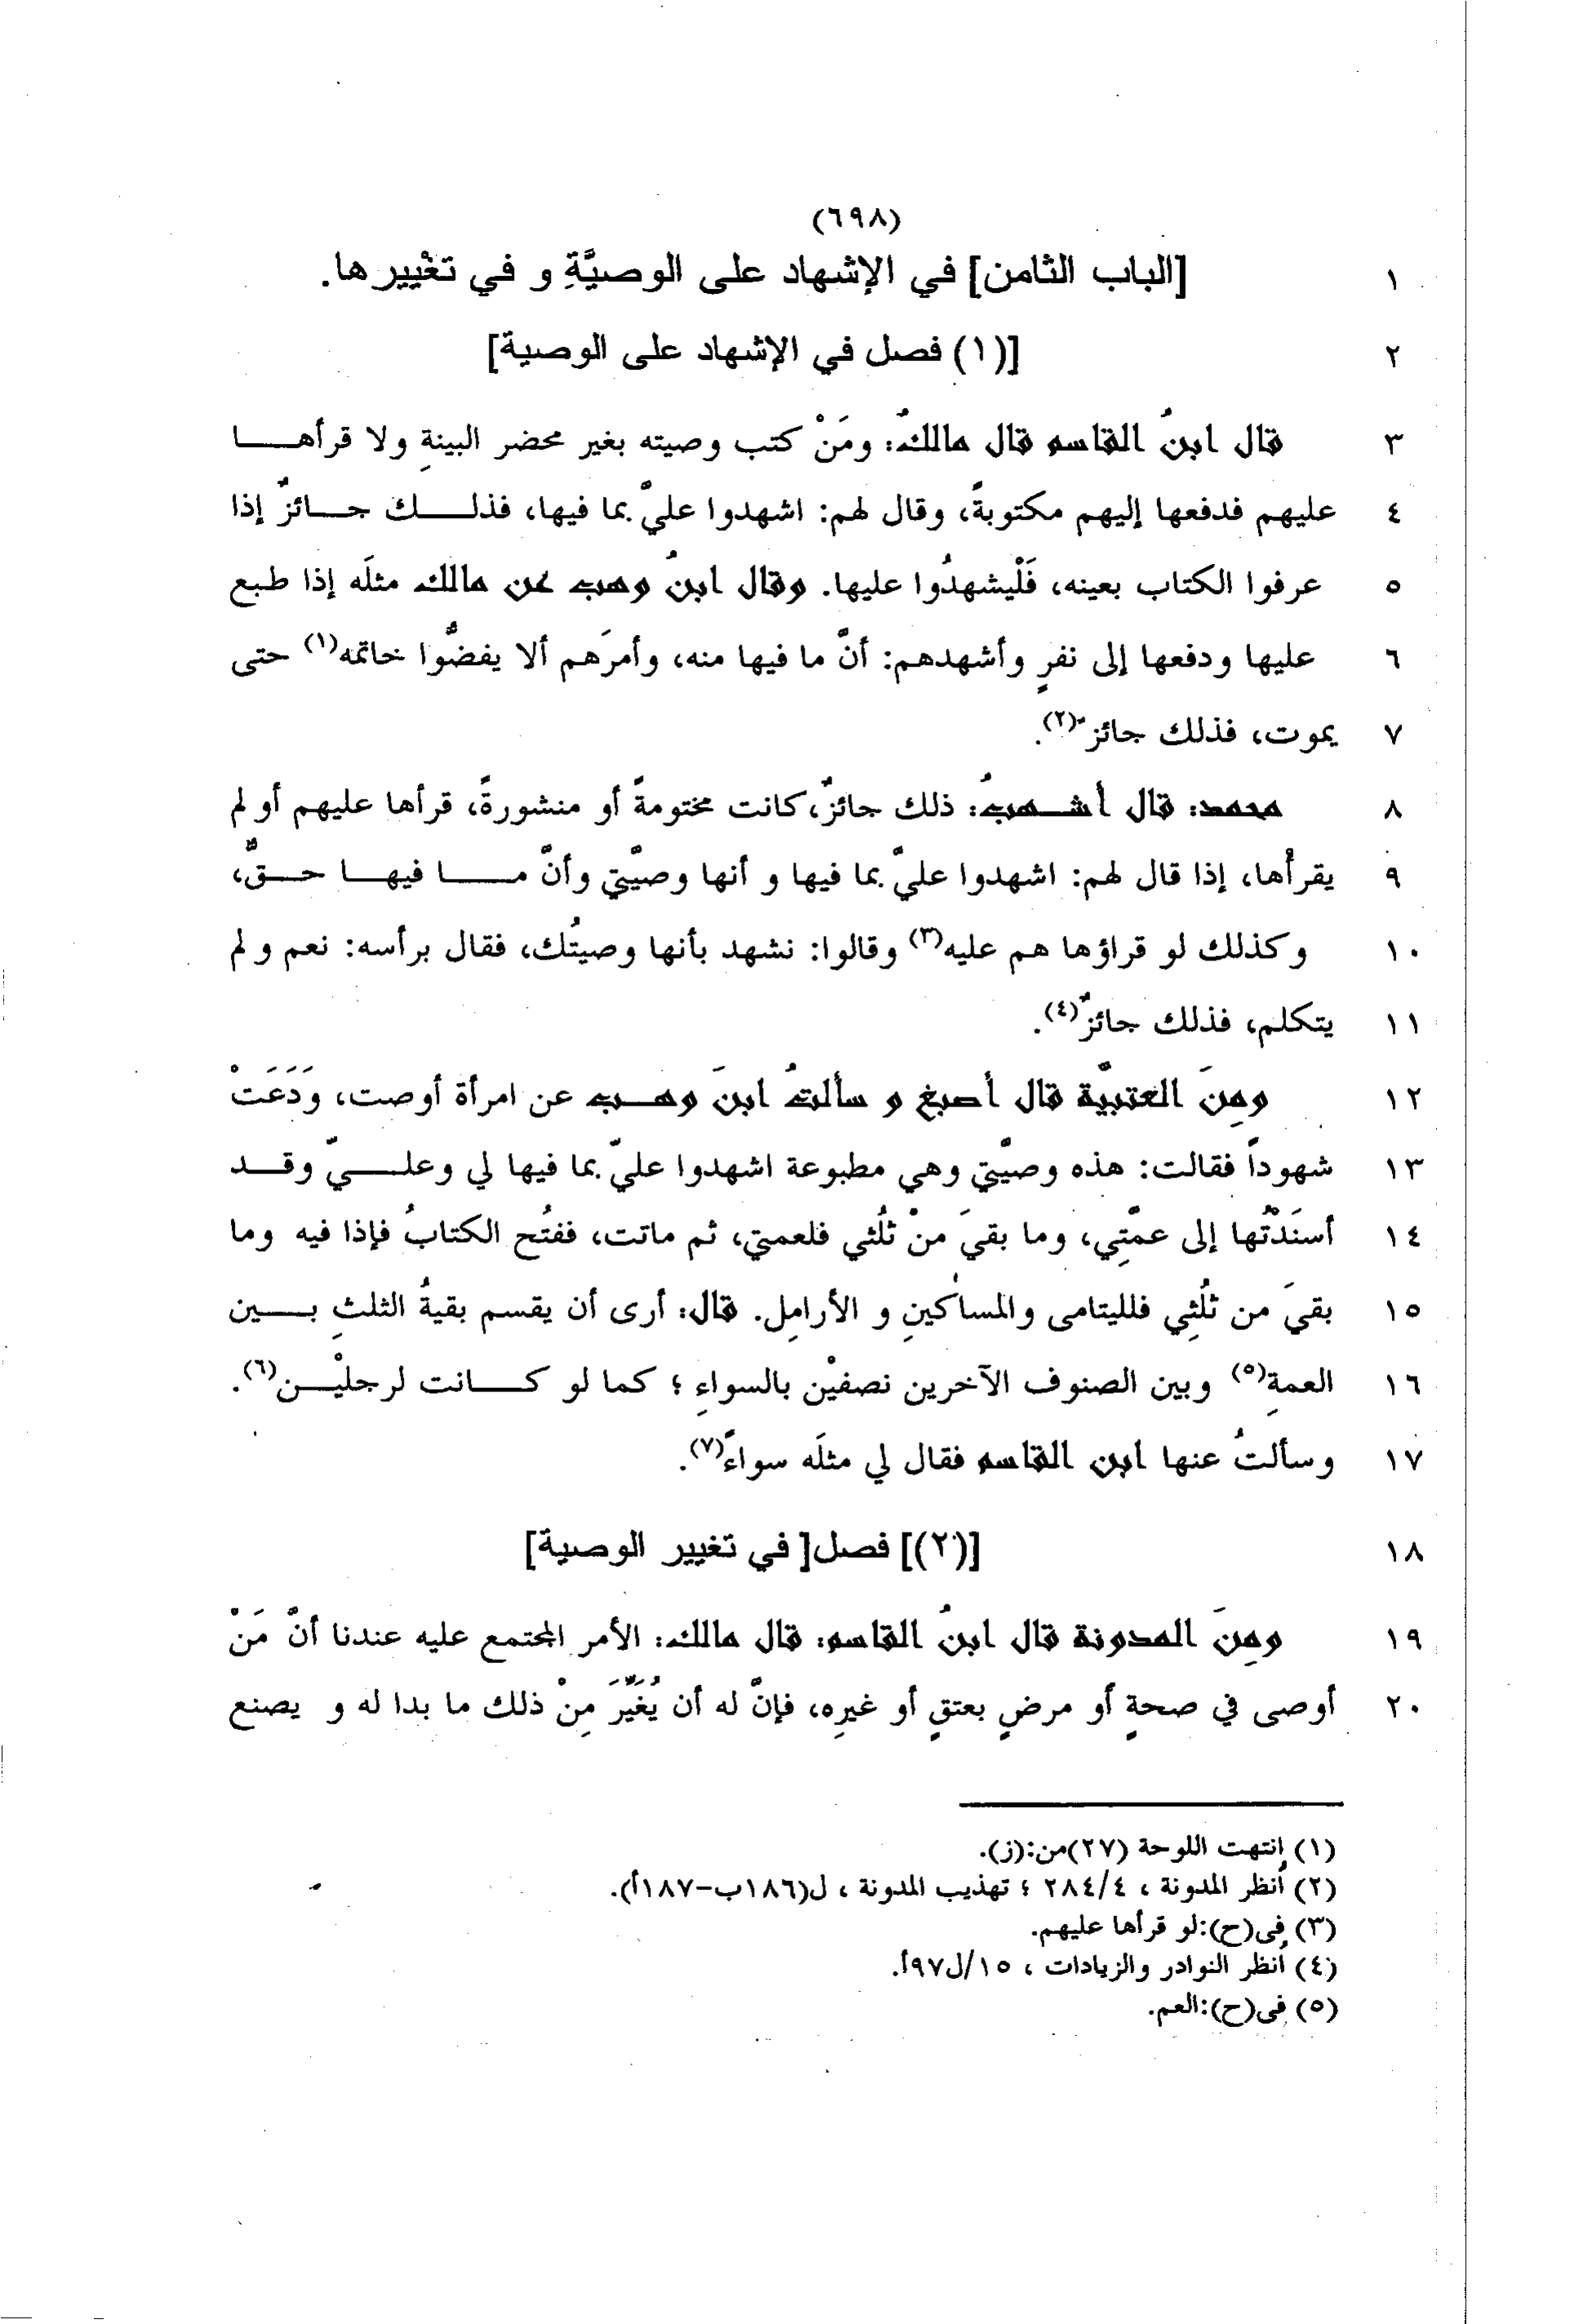 (٦٩٨)
١ [الباب الثامن] في الإشهاد على الوصيَّةِ و في تغْيير ها.
٢ [(١) فصل في الإشهاد على الوصية]
٣ قال ابنُ القاسم قال مالكٌ: ومَنْ كتب وصيته بغير محضر البينةِ ولا قرأهـــا
٤ عليهم فدفعها إليهم مكتوبةً، وقال لهم: اشهدوا عليّ بما فيها، فذلــــك جــائزٌ إذا
٥ عرفوا الكتاب بعينه، فَلْيشهدُوا عليها. وقال ابنُ وهب عن مالك مثلَه إذا طبع
٦ عليها ودفعها إلى نفرٍ وأشهدهم: أنّ ما فيها منه، وأمرَهم ألا يفضُّوا خاتمه(١) حتى
٧ يموت، فذلك جائز ٌ(٢).
٨ محمد: قال أشــهبُ: ذلك جائزٌ، كانت مختومةً أو منشورةً، قرأها عليهم أو لم
٩ يقرأْها، إذا قال لهم: اشهدوا عليّ بما فيها و أنها وصيّتي وأنّ مـــا فيهــا حــقٌّ،
١٠ وكذلك لو قراؤها هم عليه(٣) وقالوا: نشهد بأنها وصيتُك، فقال برأسه: نعم و لم
١١ يتكلم، فذلك جائزٌ(٤).
١٢ ومِنَ العتبيّة قال أصبغ و سألتُ ابنَ وهــب عن امرأة أوصت، وَدَعَتْ
١٣ شهوداً فقالت: هذه وصيّتي وهي مطبوعة اشهدوا عليّ بما فيها لي وعلـــيّ وقــد
١٤ أسنَدْتُها إلى عمّتِي، وما بقيَ منْ ثُلُثي فلعمتي، ثم ماتت، ففتُح الكتابُ فإذا فيه وما
١٥ بقيَ من ثُلُثِي فلليتامى والمساكينِ و الأرامِل. قال: أرى أن يقسم بقيةُ الثلثِ بـــين
١٦ العمةِ(٥) وبين الصنوف الآخرين نصفيْن بالسواءِ ؛ كما لو كـــانت لرجليْــن(٦).
١٧ وسألتُ عنها ابن القاسم فقال لي مثلَه سواءً(٧).
١٨ [(٢)] فصل[ في تغيير الوصية]
١٩ ومِنَ المدونة قال ابنُ القاسم: قال مالك: الأمر المجتمع عليه عندنا أنّ مَنْ
٢٠ أوصى في صحةٍ أو مرضٍ بعتقٍ أو غيرِه، فإنّ له أن يُغَيِّرَ مِنْ ذلك ما بدا له و يصنع
(١) إنتهت اللوحة (٢٧)من:(ز).
(٢) أنظر المدونة ، ٢٨٤/٤ ؛ تهذيب المدونة ، ل(١٨٦ب-١٨٧أ).
(٣) فى(ح):لو قرأها عليهم.
(٤) أنظر النوادر والزيادات ، ١٥/ل٩٧أ.
(٥) فى(ح):العم.